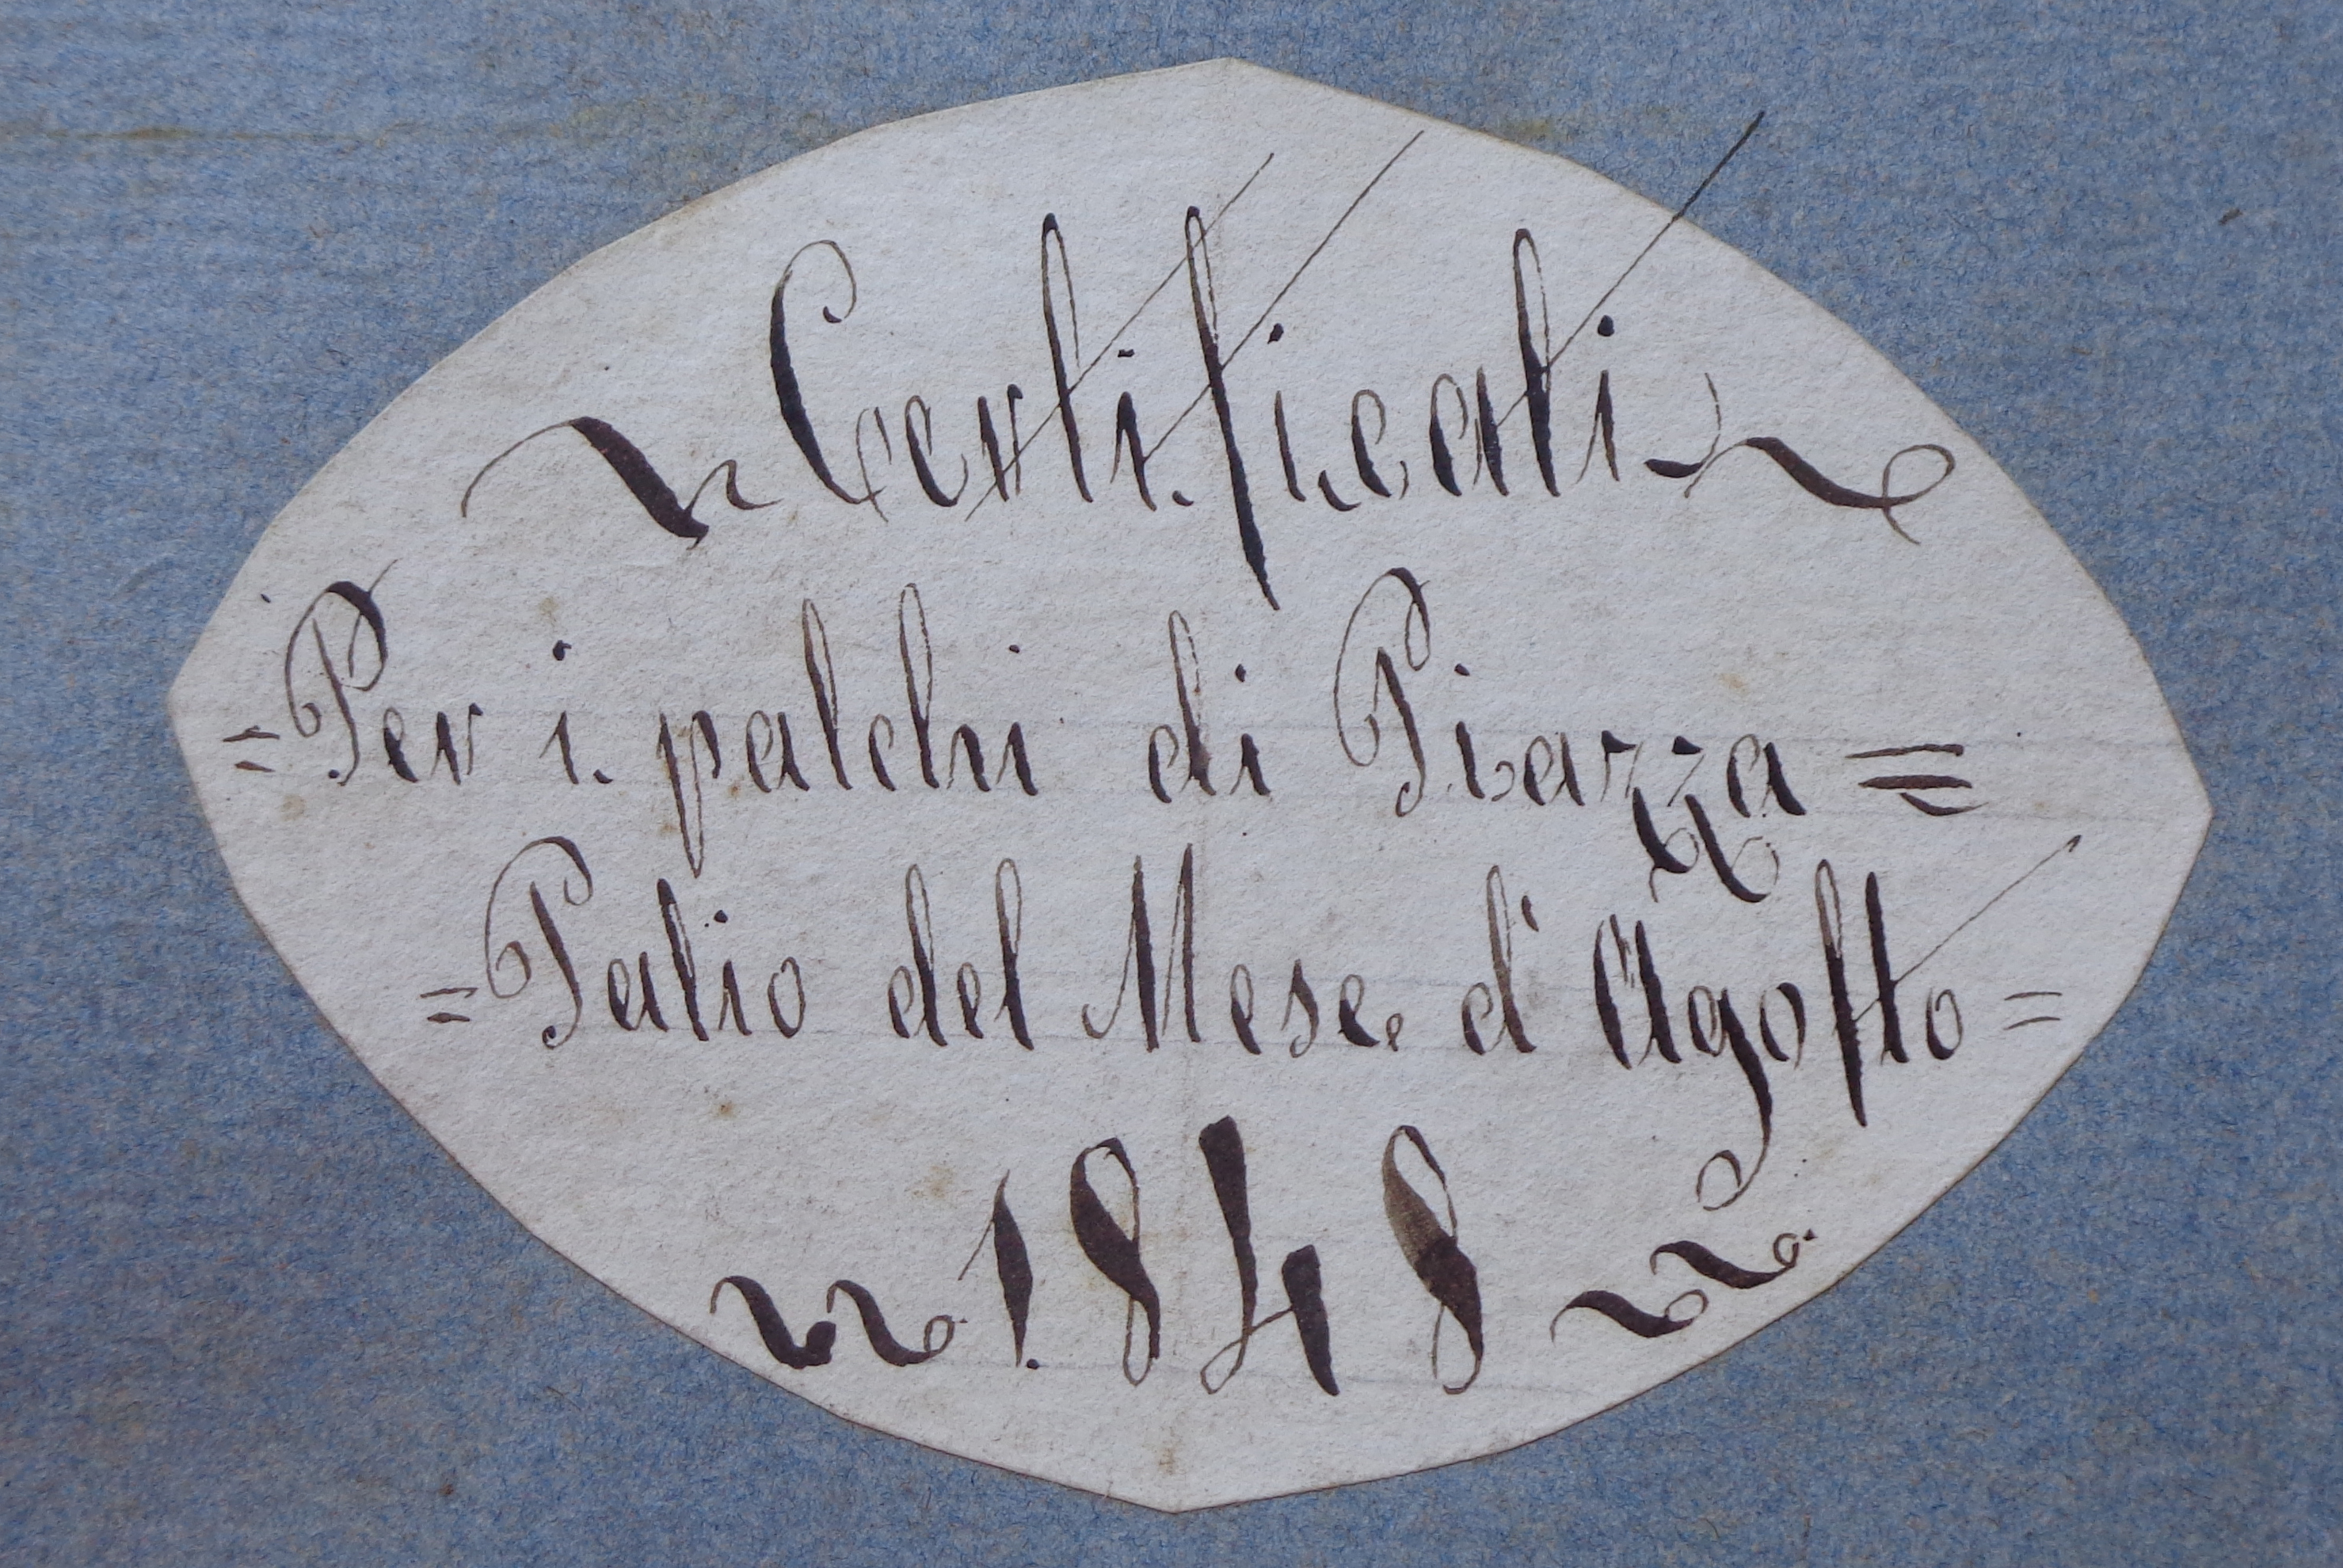 ~ Certificati ~
= Per i palchi di Piazza =
= Palio del Mese d' Agosto =
~ 1848 ~